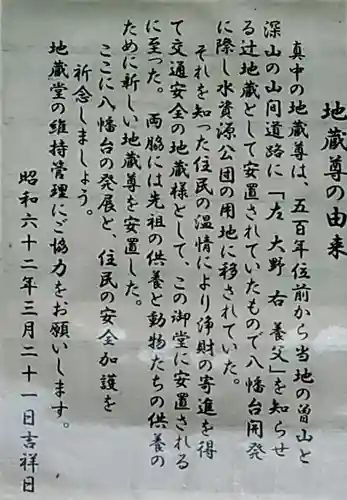 地蔵尊の由来
真中の地蔵尊は、五百年位前から当地の曽山と
深山の山間道路に「左 大野 右 養父」を知らせ
る辻地蔵として安置されていたもので八幡台開発
に際し水資源公団の用地に移されていた。
それを知った住民の温情により浄財の寄進を得
て交通安全の地蔵様として、この御堂に安置される
に至った。両脇には先祖の供養と動物たちの供養の
ために新しい地蔵尊を安置した。
ここに八幡台の発展と 住民の安全加護を
祈念しましょう。
地蔵堂の維持管理にご協力をお願いします。
昭和六十二年三月二十一日吉祥日